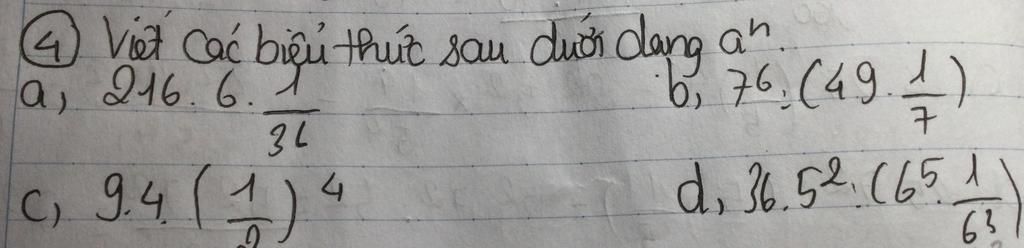 ④ Viết các biểu thức sau dưới dạng aⁿ.
a, 216. 6. 1/36 b, 7⁶: (49. 1/7)
c, 9.4. (1/2)⁴ d, 36. 5²: (6⁵. 1/6³)